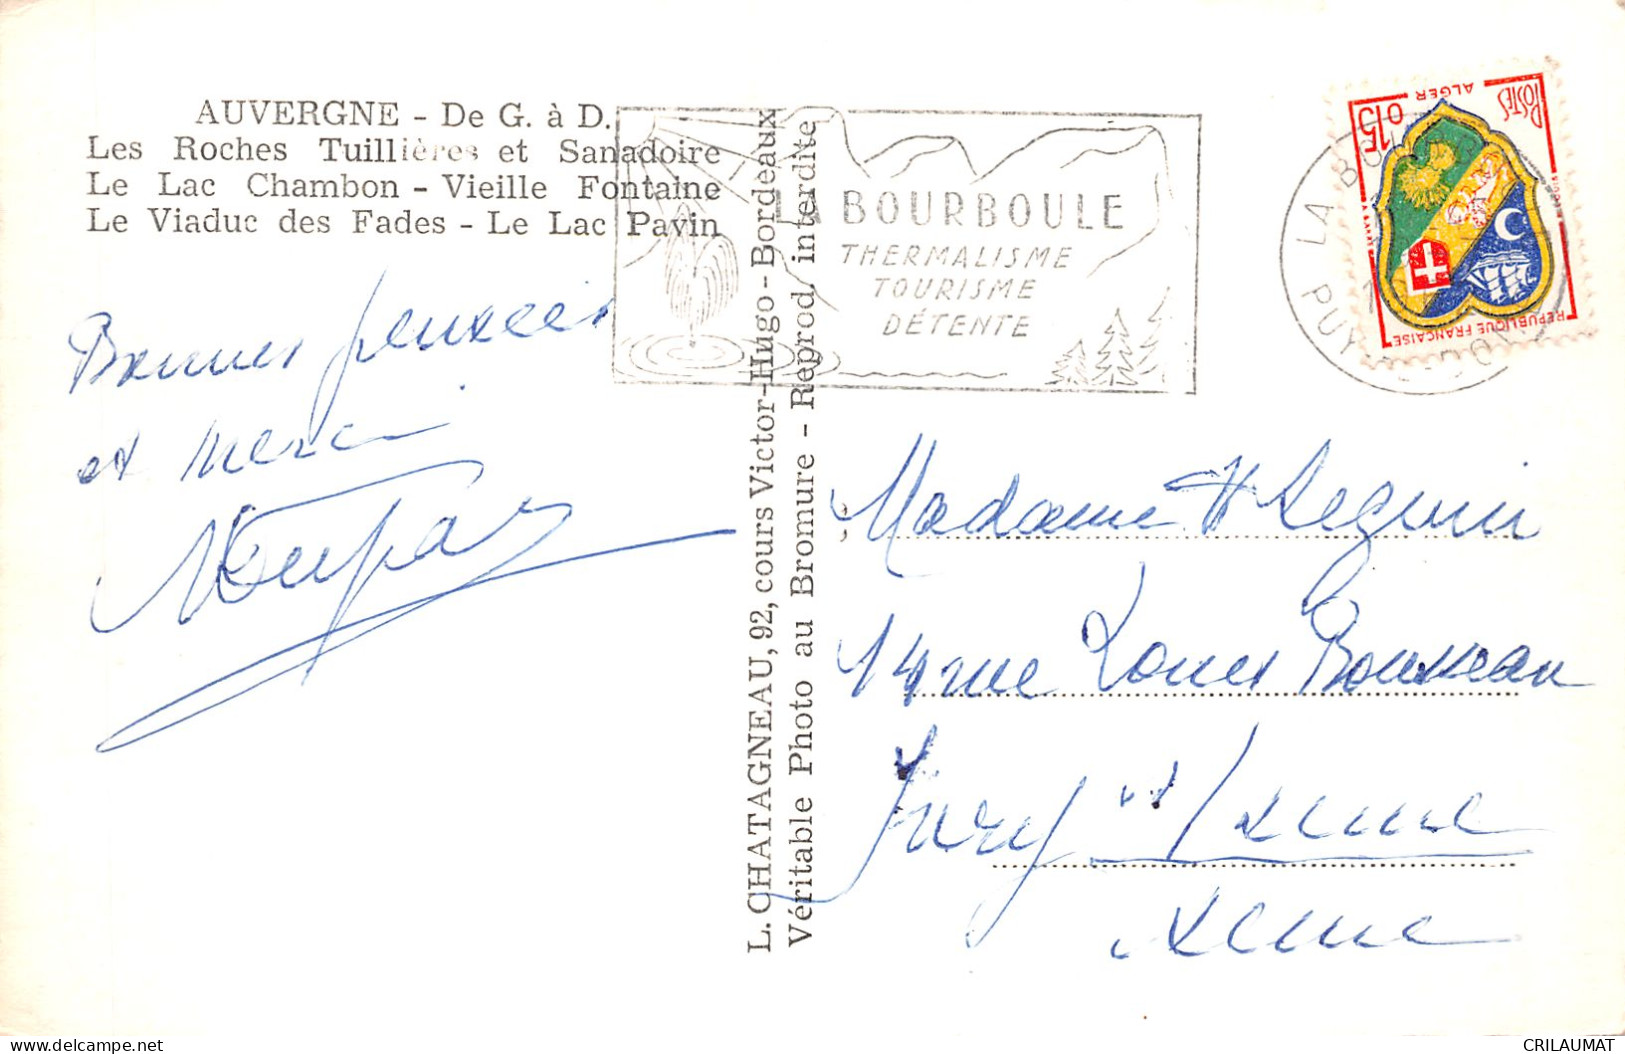 AUVERGNE - De G. à D.
Les Roches Tuillières et Sanadoire
Le Lac Chambon - Vieille Fontaine
Le Viaduc des Fades - Le Lac Pavin
Bonnes pensées
et merci
L. CHATAGNEAU, 92, cours Victor-Hugo - Bordeaux
Véritable Photo au Bromure - Reprod. interdite
LA BOURBOULE
THERMALISME
TOURISME
DÉTENTE
LA BOURBOULE
PUY-DE-DÔME
POSTES
ALGER
0,15
REPUBLIQUE FRANÇAISE
Madame H Seguin
14 rue Louis Rousseau
Ivry s/ Seine
Seine
CRILAUMAT